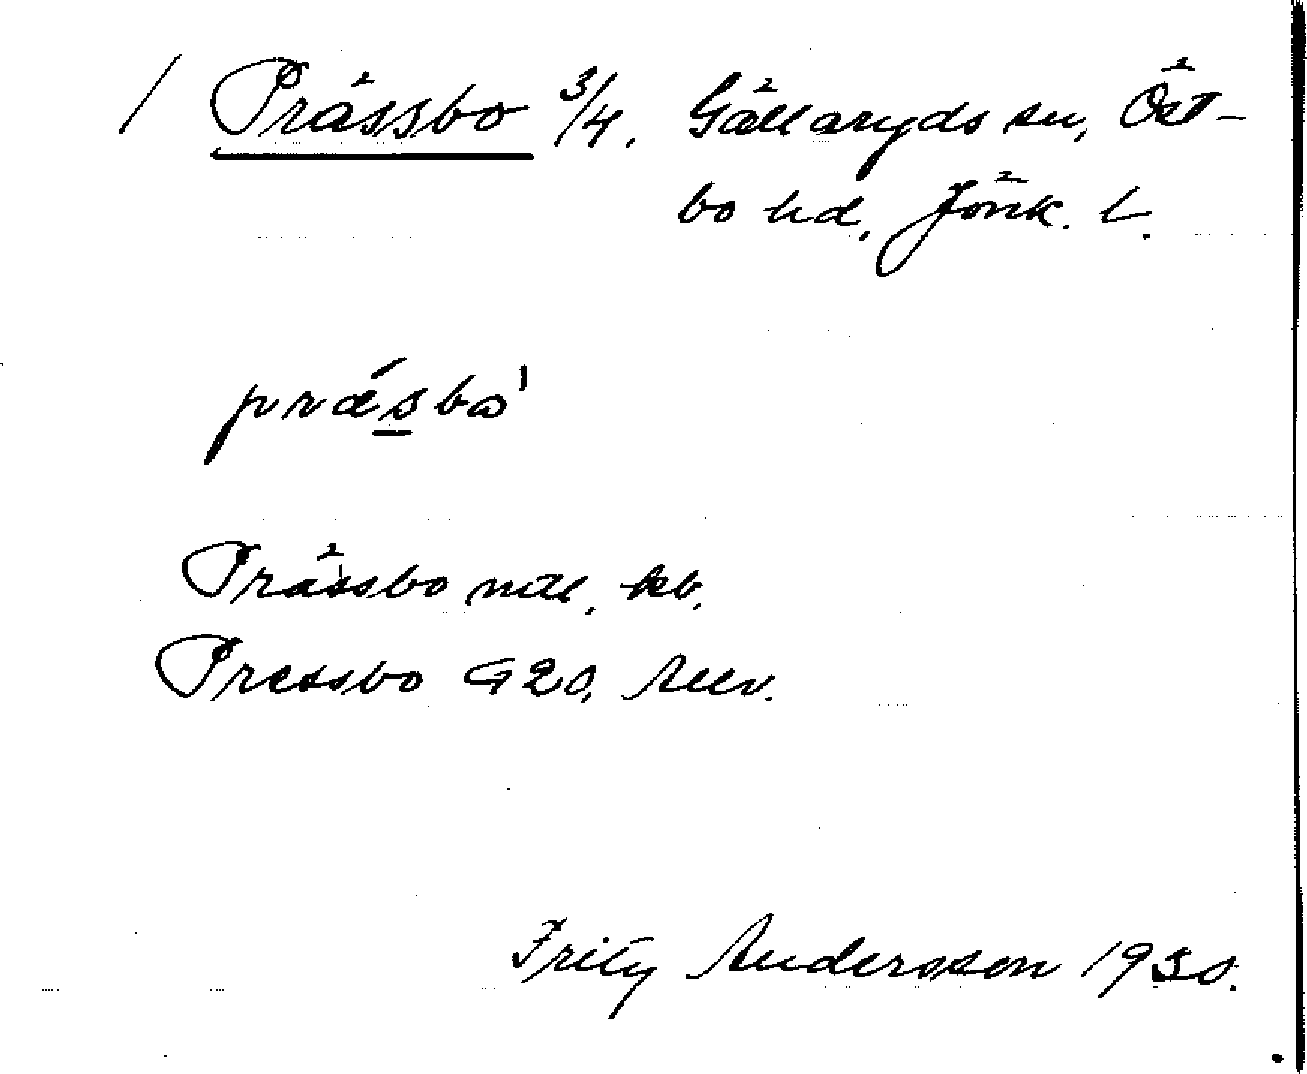 / Prässbo 3/4. Gällaryds sn, Öst-
bo hd, Jönk. l.
præ´sbo
Prässbo mtl. kb.
Pressbo G 20,
Fritz Andersson 1930.